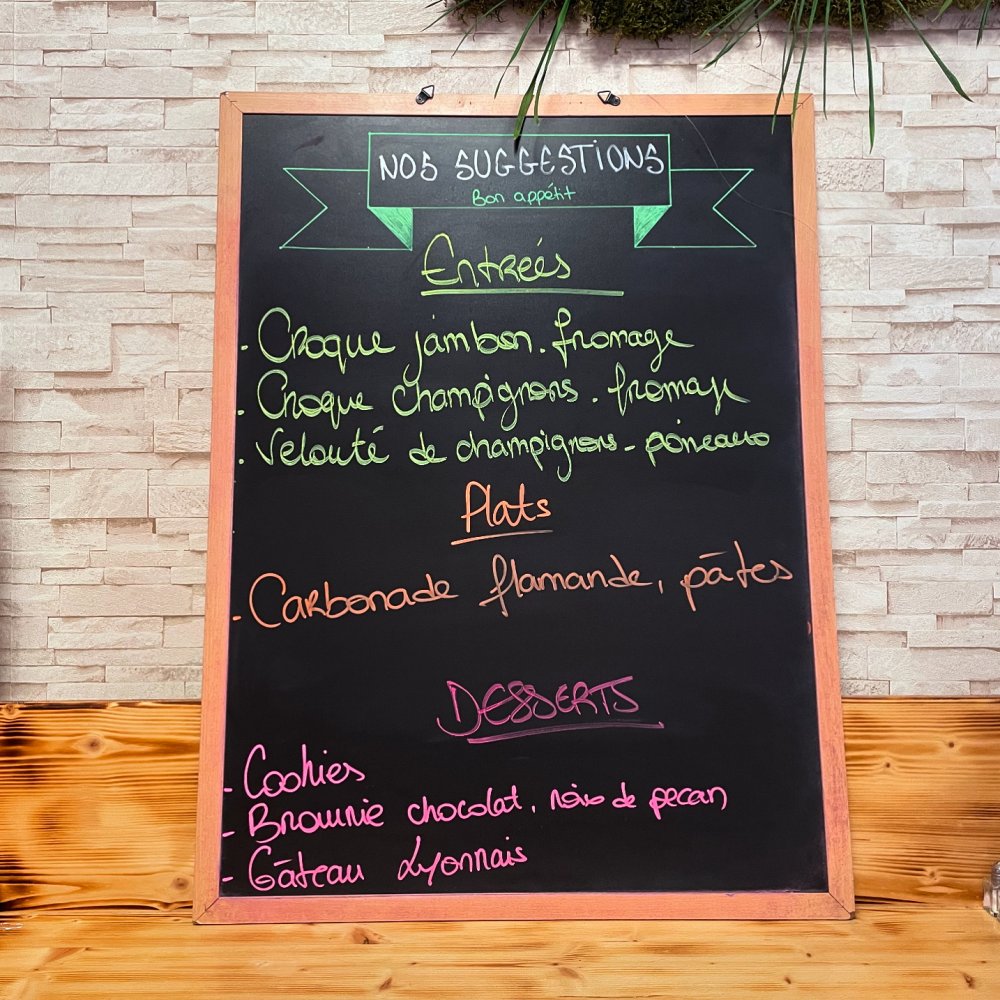 NOS SUGGESTIONS
Bon appétit
Entreés
- Croque jambon. fromage
- Croque champignons. fromage
- Velouté de champignons - poireaux
Plats
- Carbonade flamande, pâtes
DESSERTS
- Cookies
- Brownie chocolat, noix de pecan
- Gâteau Lyonnais